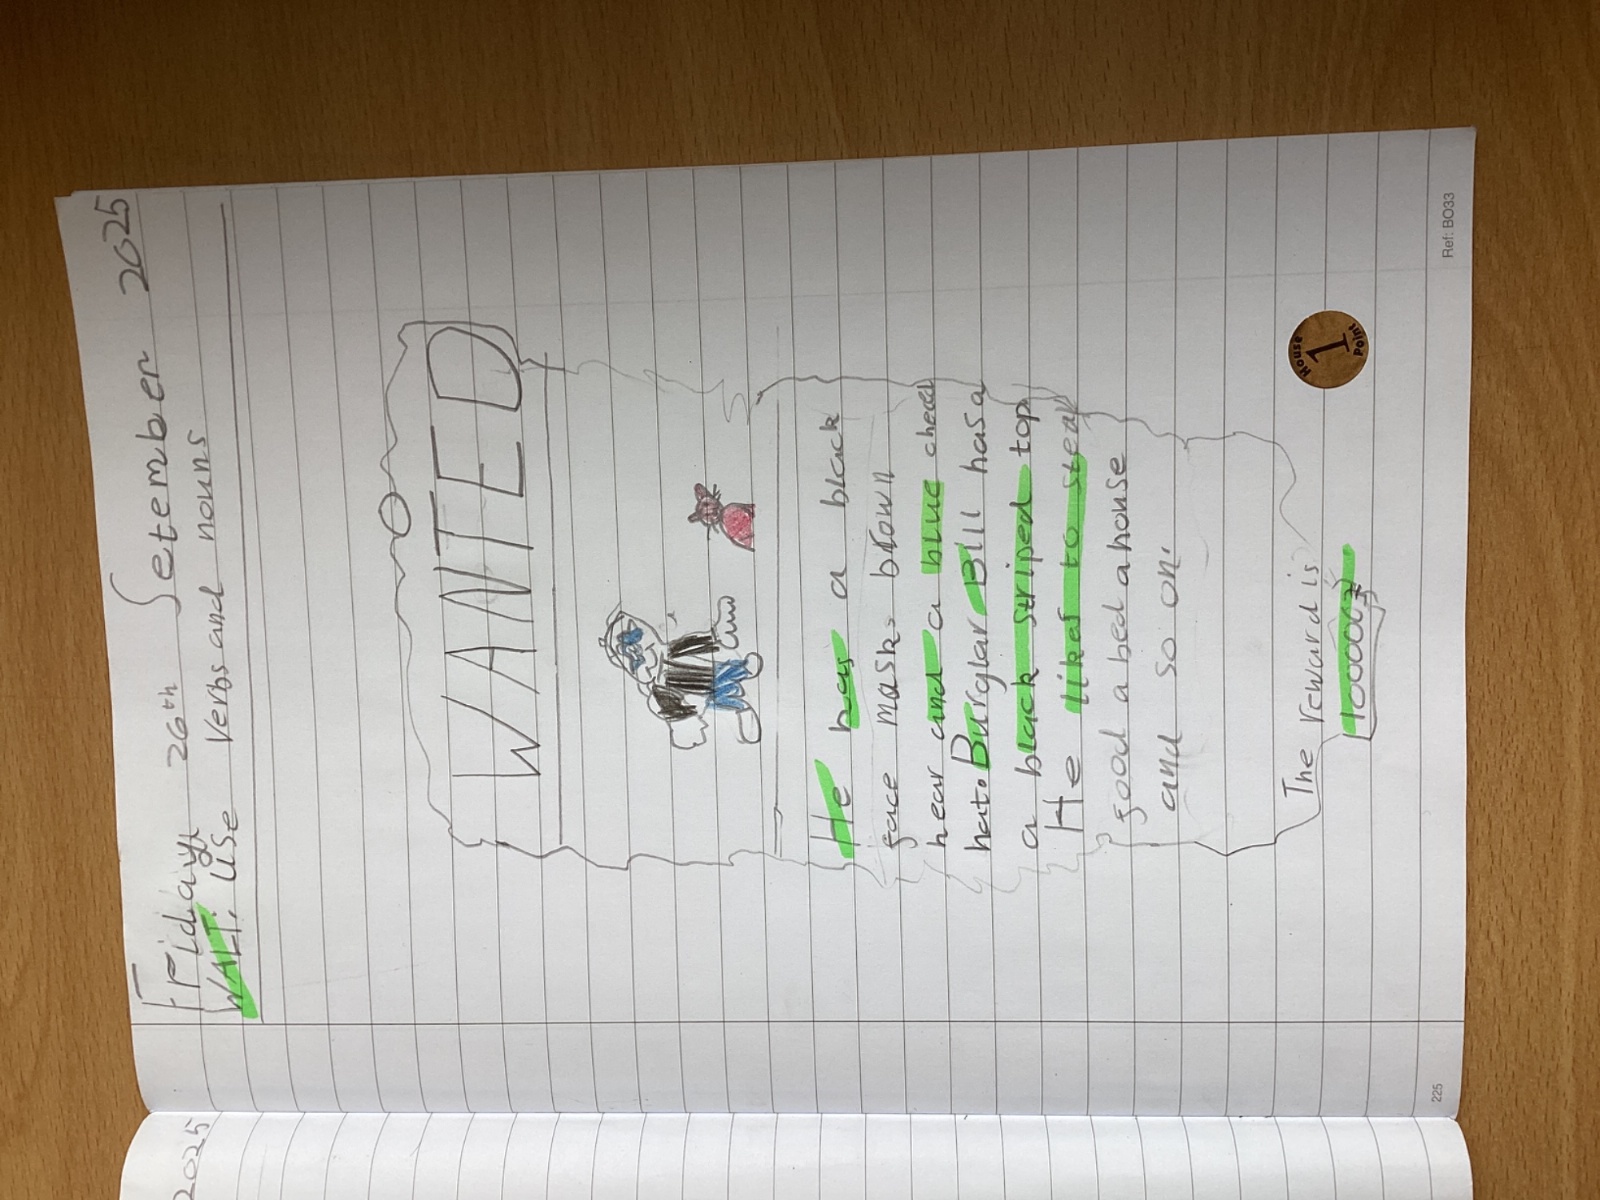 Friday 26th Setember 2025
WALT. USe verbs and nouns
WANTED
He has a black
face mask. brown
hear and a blue cheed
hat. Burglar Bill has a
a black striped top
He likes to steal
food a bed a house
and so on.
The reward is
House
1
Point
Ref: BO33
225
2025